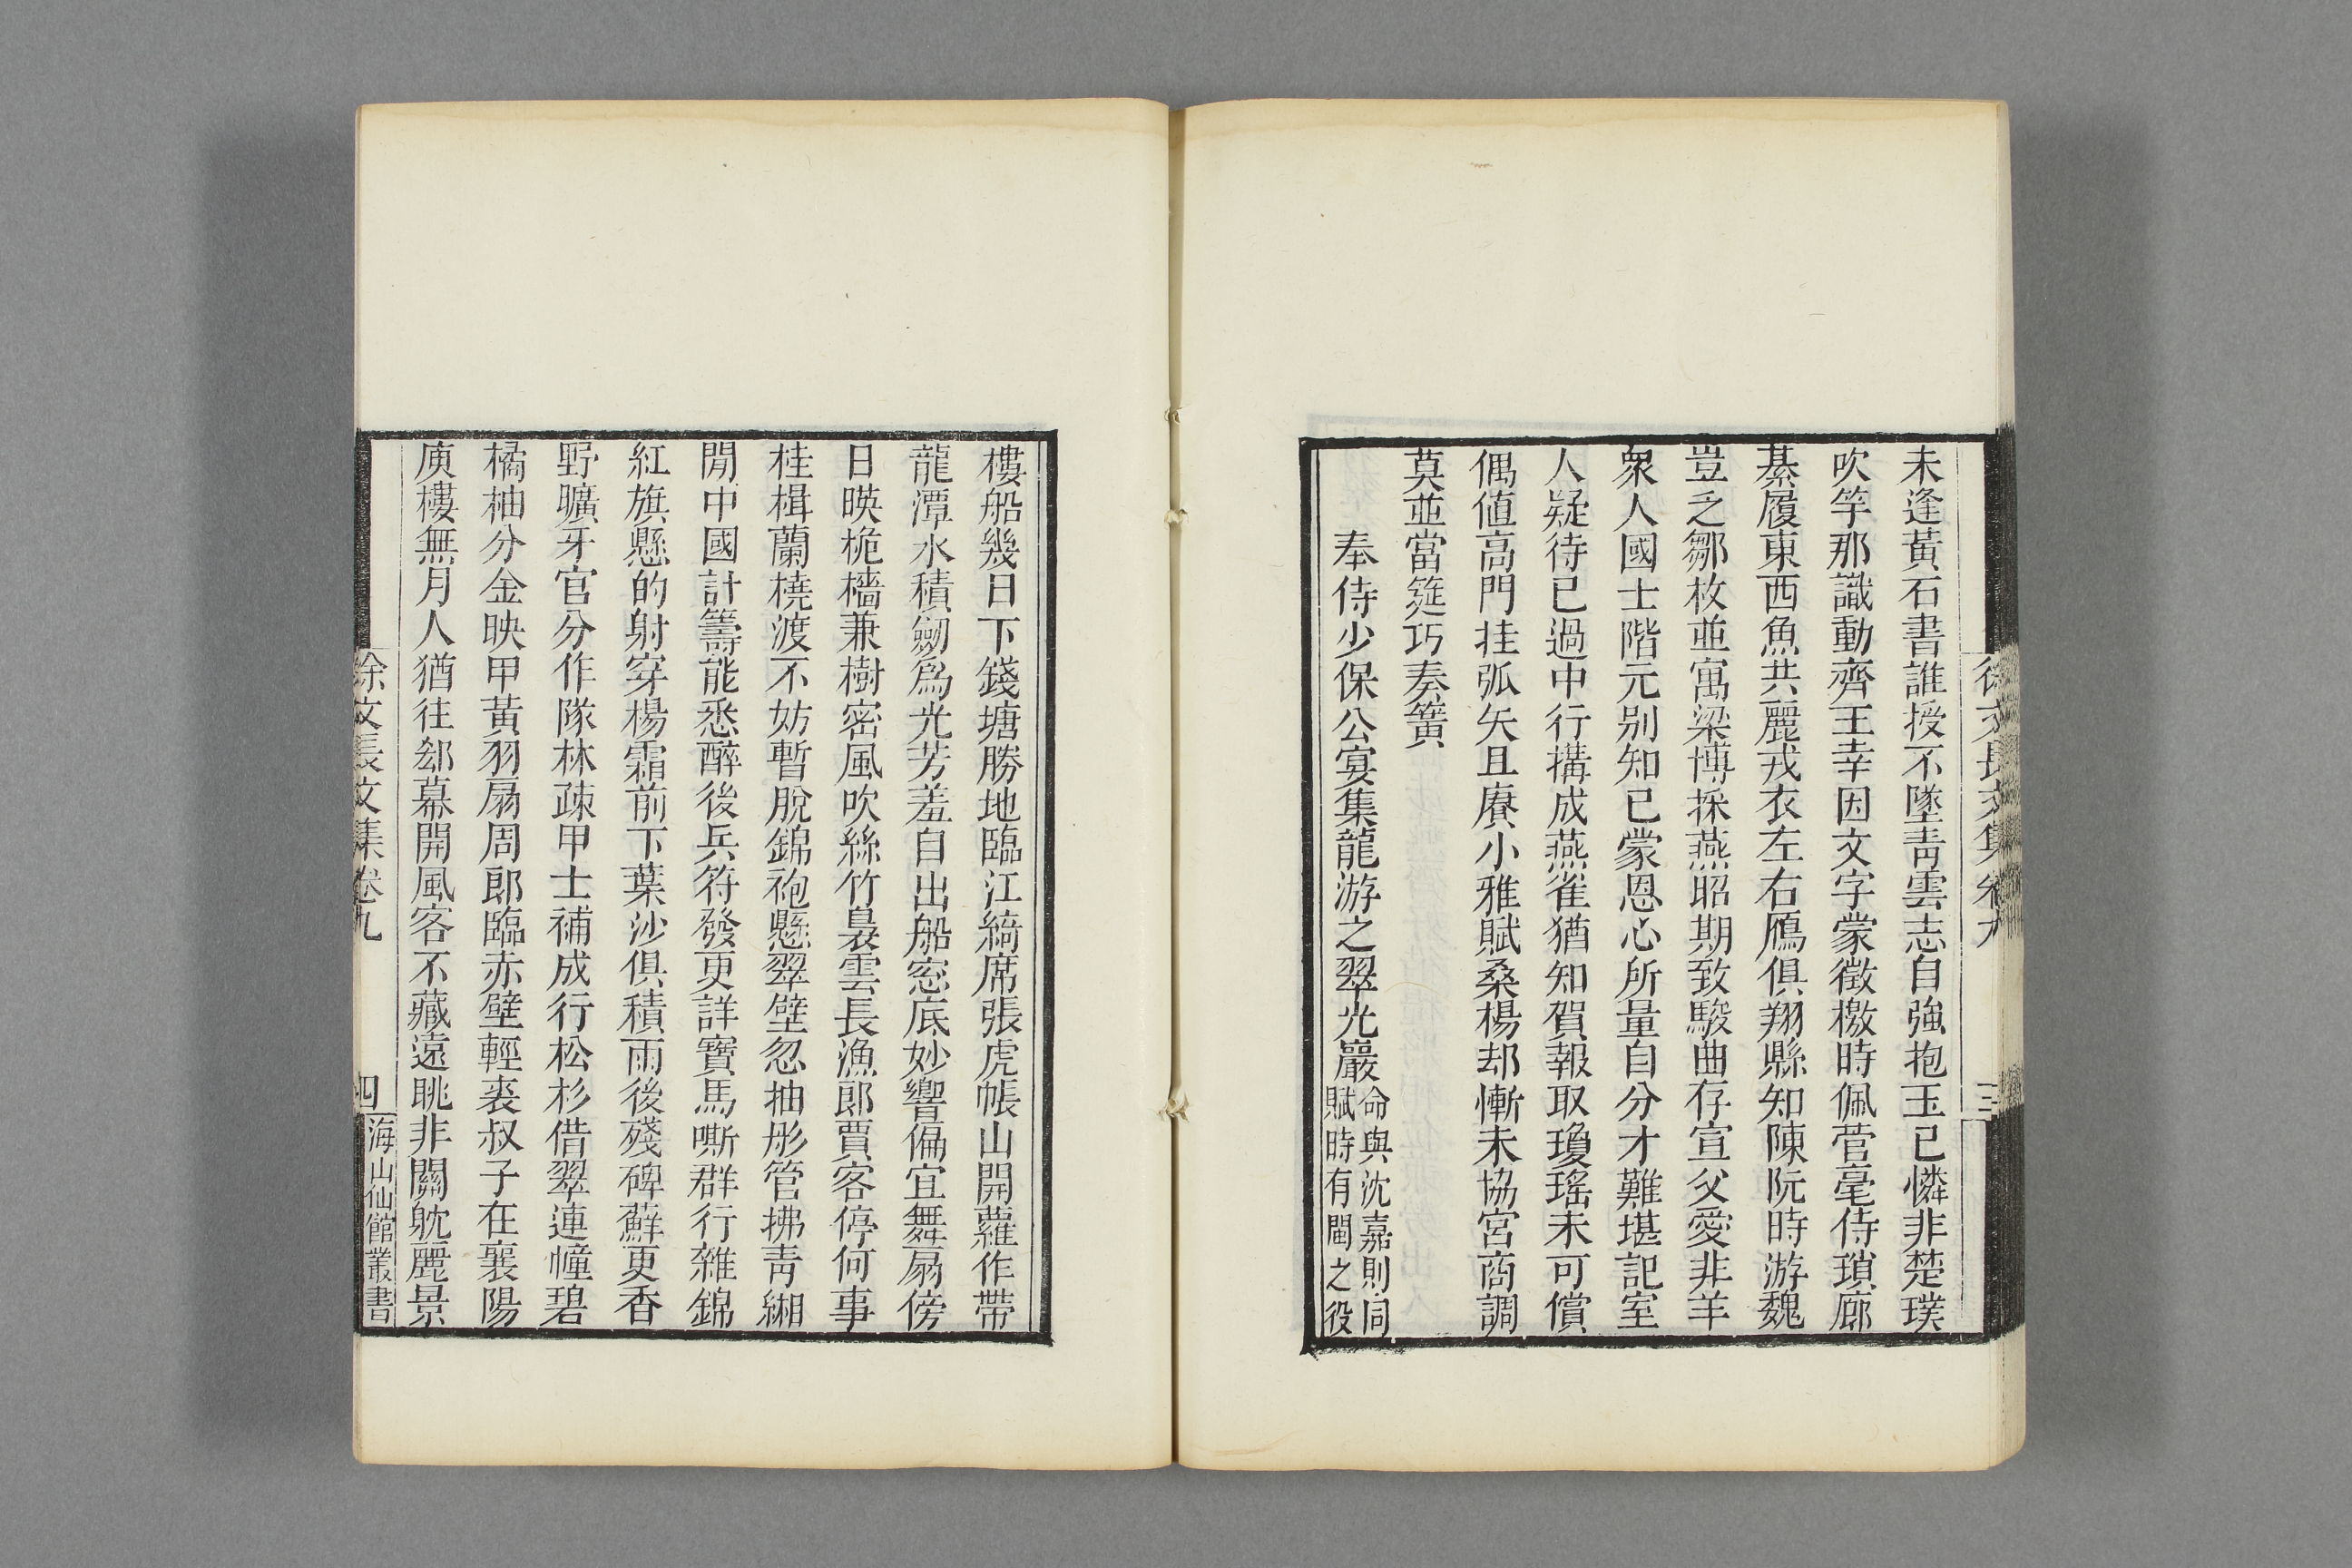 未逢黃石書誰授不墜靑雲志自強抱玉已憐非楚璞
吹竽那識動齊王幸因文字蒙徵檄時佩菅毫侍瑣廊
綦履東西魚共麗戎衣左右鴈俱翔縣知陳阮時游魏
豈乏鄒枚並寓梁博採燕昭期致駿曲存宣父愛非羊
衆人國士階元别知已蒙恩心所量自分才難堪記室
人疑待已過中行搆成燕雀猶知賀報取瓊瑤未可償
偶値高門挂弧矢且賡小雅賦桑楊却慚未協宮商調
莫並當筵巧奏簧
奉侍少保公宴集龍游之翠光巖
命與沈嘉則同
賦時有閩之役
徐文長文集 卷九
三
樓船幾日下錢塘勝地臨江綺席張虎帳山開蘿作帶
龍潭水積劒爲光芳羞自出船窓底妙響偏宜舞扇傍
日暎桅檣兼樹密風吹絲竹裊雲長漁郎賈客停何事
桂楫蘭橈渡不妨暫脫錦袍懸翠壁忽抽彤管拂靑緗
閒中國計籌能悉醉後兵符發更詳寶馬嘶群行雜錦
紅旗懸的射穿楊霜前下葉沙俱積雨後殘碑蘚更香
野曠牙官分作隊林疎甲士補成行松杉借翠連幢碧
橘柚分金映甲黃羽扇周郎臨赤壁輕裘叔子在襄陽
庾樓無月人猶往郄幕開風客不藏遠眺非關躭麗景
徐文長文集卷九
四
海山仙館叢書